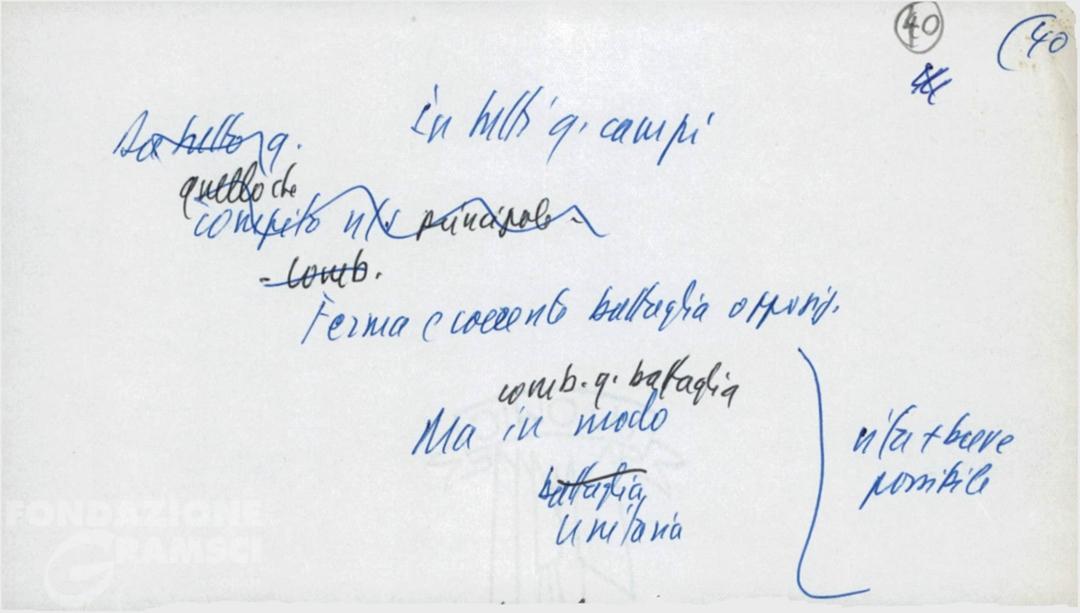 40
(40
In tutti q. campi
q.
quello che
compito principale -
- Comb.
Ferma e coerente battaglia opposiz.
comb. q. battaglia
Ma in modo
battaglia
unitaria
+ breve
possibile
FONDAZIONE
GRAMSCI